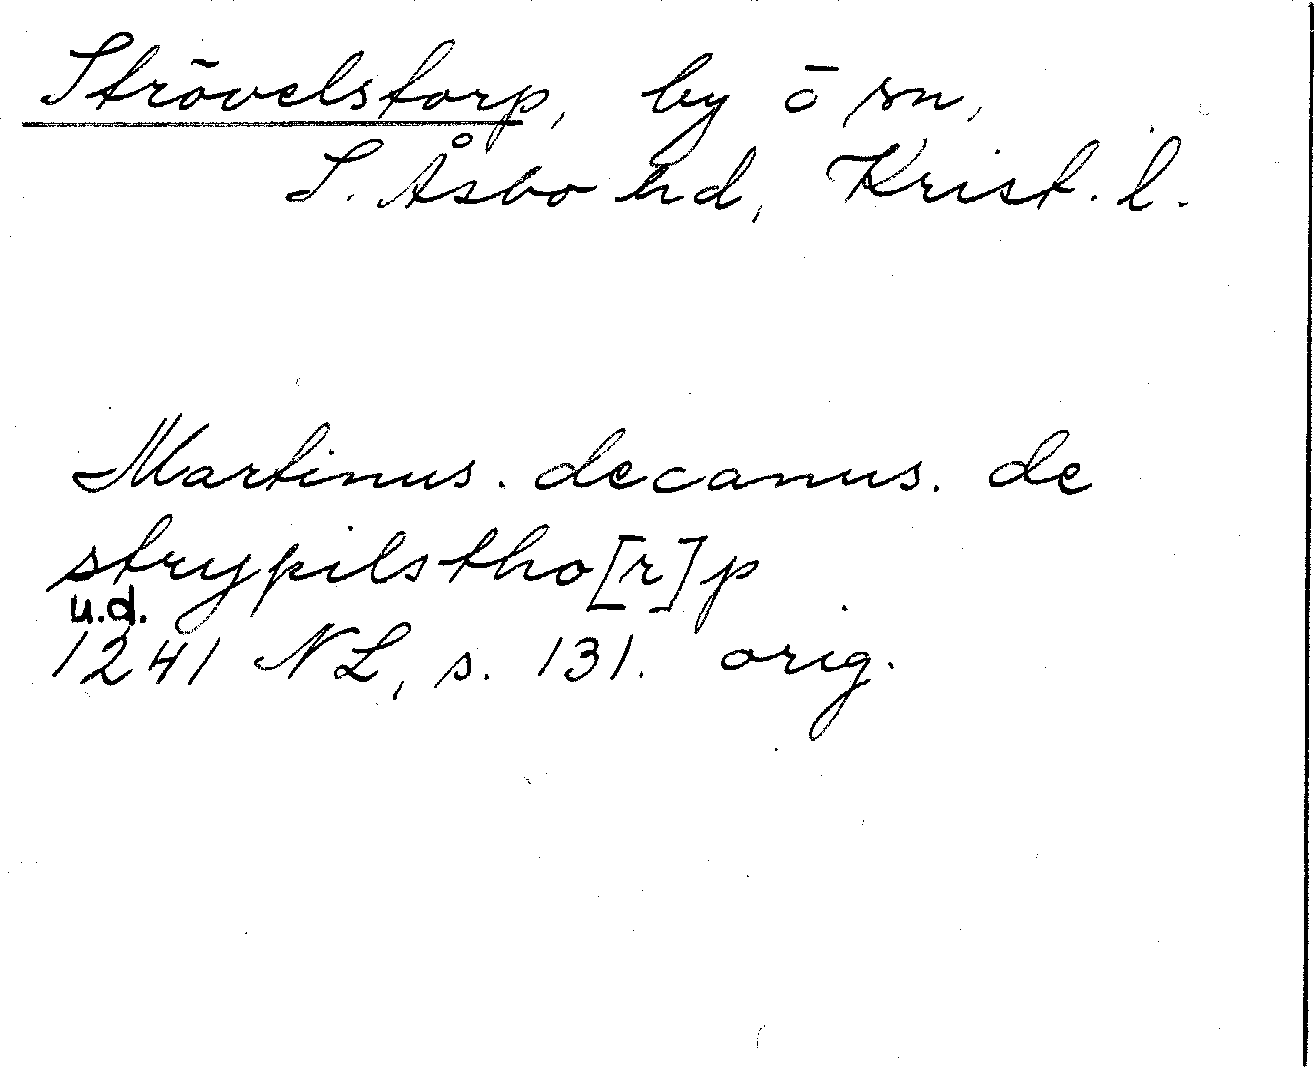 Strövelstorp, by o sn,
S. Åsbo hd, Krist. l.
Martinus. decanus. de
strypilstho[r]p
u.d.
1241 NL, s. 131. orig.